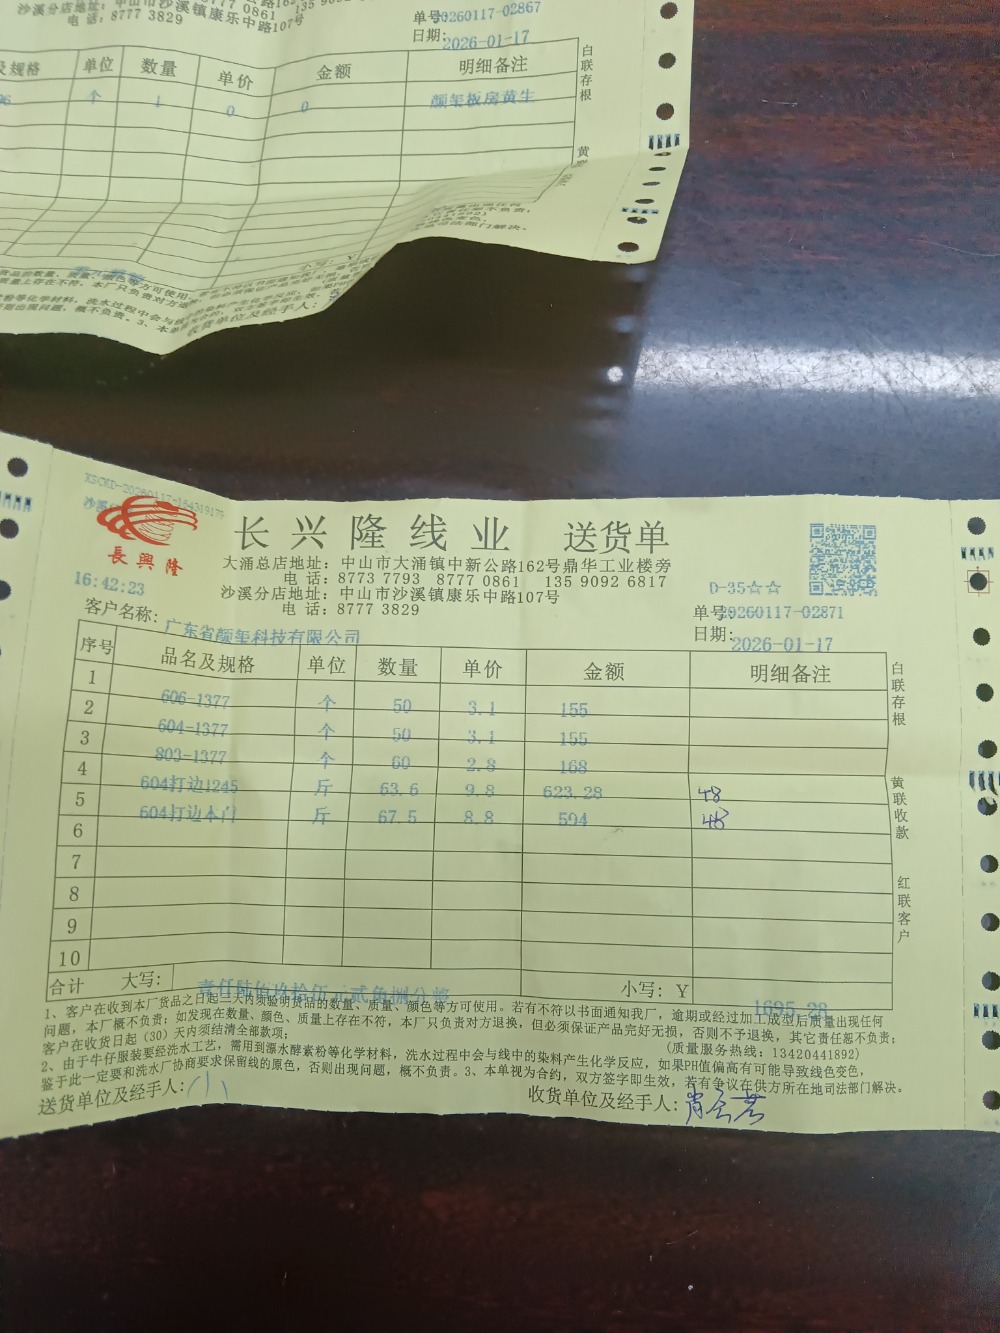 沙溪分店地址：中山市沙溪镇康乐中路107号
电 话：8777 3829
单号20260117-02867
日期：2026-01-17
及规格 单位 数量 单价 金额 明细备注
个 1 0 0 颜玺板房黄生
白联存根
黄
小写：Y
收货单位及经手人：
長興隆
长兴隆线业 送货单
大涌总店地址：中山市大涌镇中新公路162号鼎华工业楼旁
电 话：8773 7793 8777 0861 135 9092 6817
沙溪分店地址：中山市沙溪镇康乐中路107号
电 话：8777 3829
16:42:23
D-35☆☆
单号20260117-02871
客户名称：广东省颜玺科技有限公司
日期：2026-01-17
序号 品名及规格 单位 数量 单价 金额 明细备注
1 606-1377 个 50 3.1 155
2 604-1377 个 50 3.1 155
3 803-1377 个 60 2.8 168
4 604打边1245 斤 63.6 9.8 623.28 48
5 604打边本门 斤 67.5 8.8 594 48
6
7
8
9
10
白联存根
黄联收款
红联客户
合计 大写：壹仟陆佰玖拾伍元贰角捌分整 小写：Y 1695.28
1、客户在收到本厂货品之日起三天内须验明货品的数量、质量、颜色等方可使用。若有不符以书面通知我厂，逾期或经过加工成型后质量出现任何
问题，本厂概不负责；如发现在数量、颜色、质量上存在不符，本厂只负责对方退换，但必须保证产品完好无损，否则不予退换，其它责任恕不负责；
客户在收货日起（30）天内须结清全部款项； (质量服务热线：13420441892)
2、由于牛仔服装要经洗水工艺，需用到漂水酵素粉等化学材料，洗水过程中会与线中的染料产生化学反应，如果PH值偏高有可能导致线色变色，
鉴于此一定要和洗水厂协商要求保留线的原色，否则出现问题，概不负责。3、本单视为合约，双方签字即生效，若有争议在供方所在地司法部门解决。
送货单位及经手人：
收货单位及经手人：